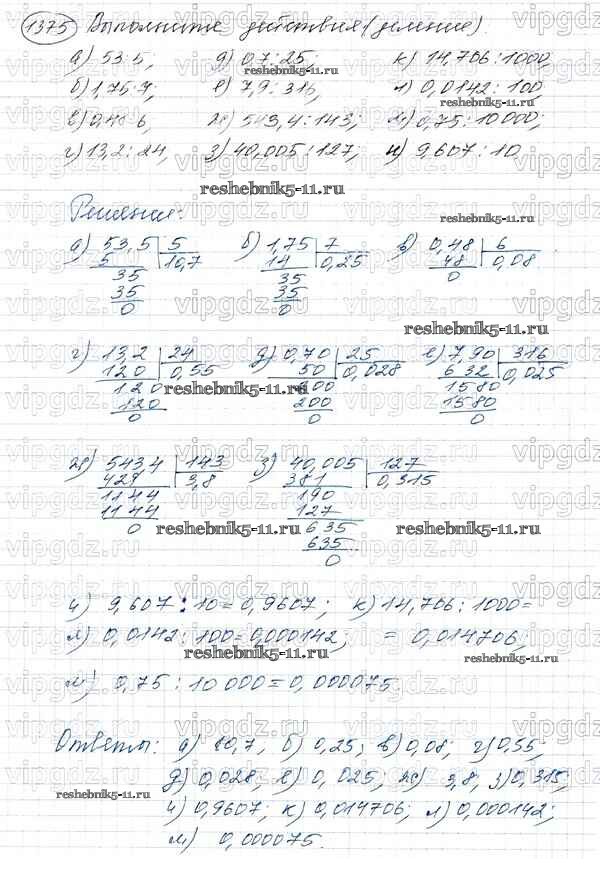 1375 Выполните действия (деление).
а) 53:5; д) 0,7:25; к) 14,706:1000,
reshebnik5-11.ru
б) 1,75:7; е) 7,9:316; л) 0,0142:100,
reshebnik5-11.ru
в) 0,48:6 ж) 543,4:143; м) 0,75:10000;
г) 13,2:24, з) 40,005:127; и) 9,607:10
reshebnik5-11.ru
Решение:
reshebnik5-11.ru
а) 53,5 5 б) 1,75 7 в) 0,48 6
5 10,7 14 0,25 48 0,08
35 35 0
35 35
0 0
reshebnik5-11.ru
г) 13,2 24 д) 0,70 25 е) 7,90 316
120 0,55 50 0,028 632 0,025
120 200 1580
120 200 1580
0 0 0
reshebnik5-11.ru
ж) 543,4 143 з) 40,005 127
429 3,8 381 0,315
1144 190
1144 127
0 635
635
0
reshebnik5-11.ru reshebnik5-11.ru
и) 9,607 : 10 = 0,9607; к) 14,706 : 1000 =
л) 0,0142 : 100 = 0,000142; = 0,014706;
reshebnik5-11.ru reshebnik5-11.ru
м) 0,75 : 10 000 = 0,000075.
Ответы: а) 10,7, б) 0,25; в) 0,08; г) 0,55;
д) 0,028, е) 0,025; ж) 3,8, з) 0,315;
reshebnik5-11.ru
и) 0,9607; к) 0,014706; л) 0,000142;
м) 0,000075.
vipgdz.ru